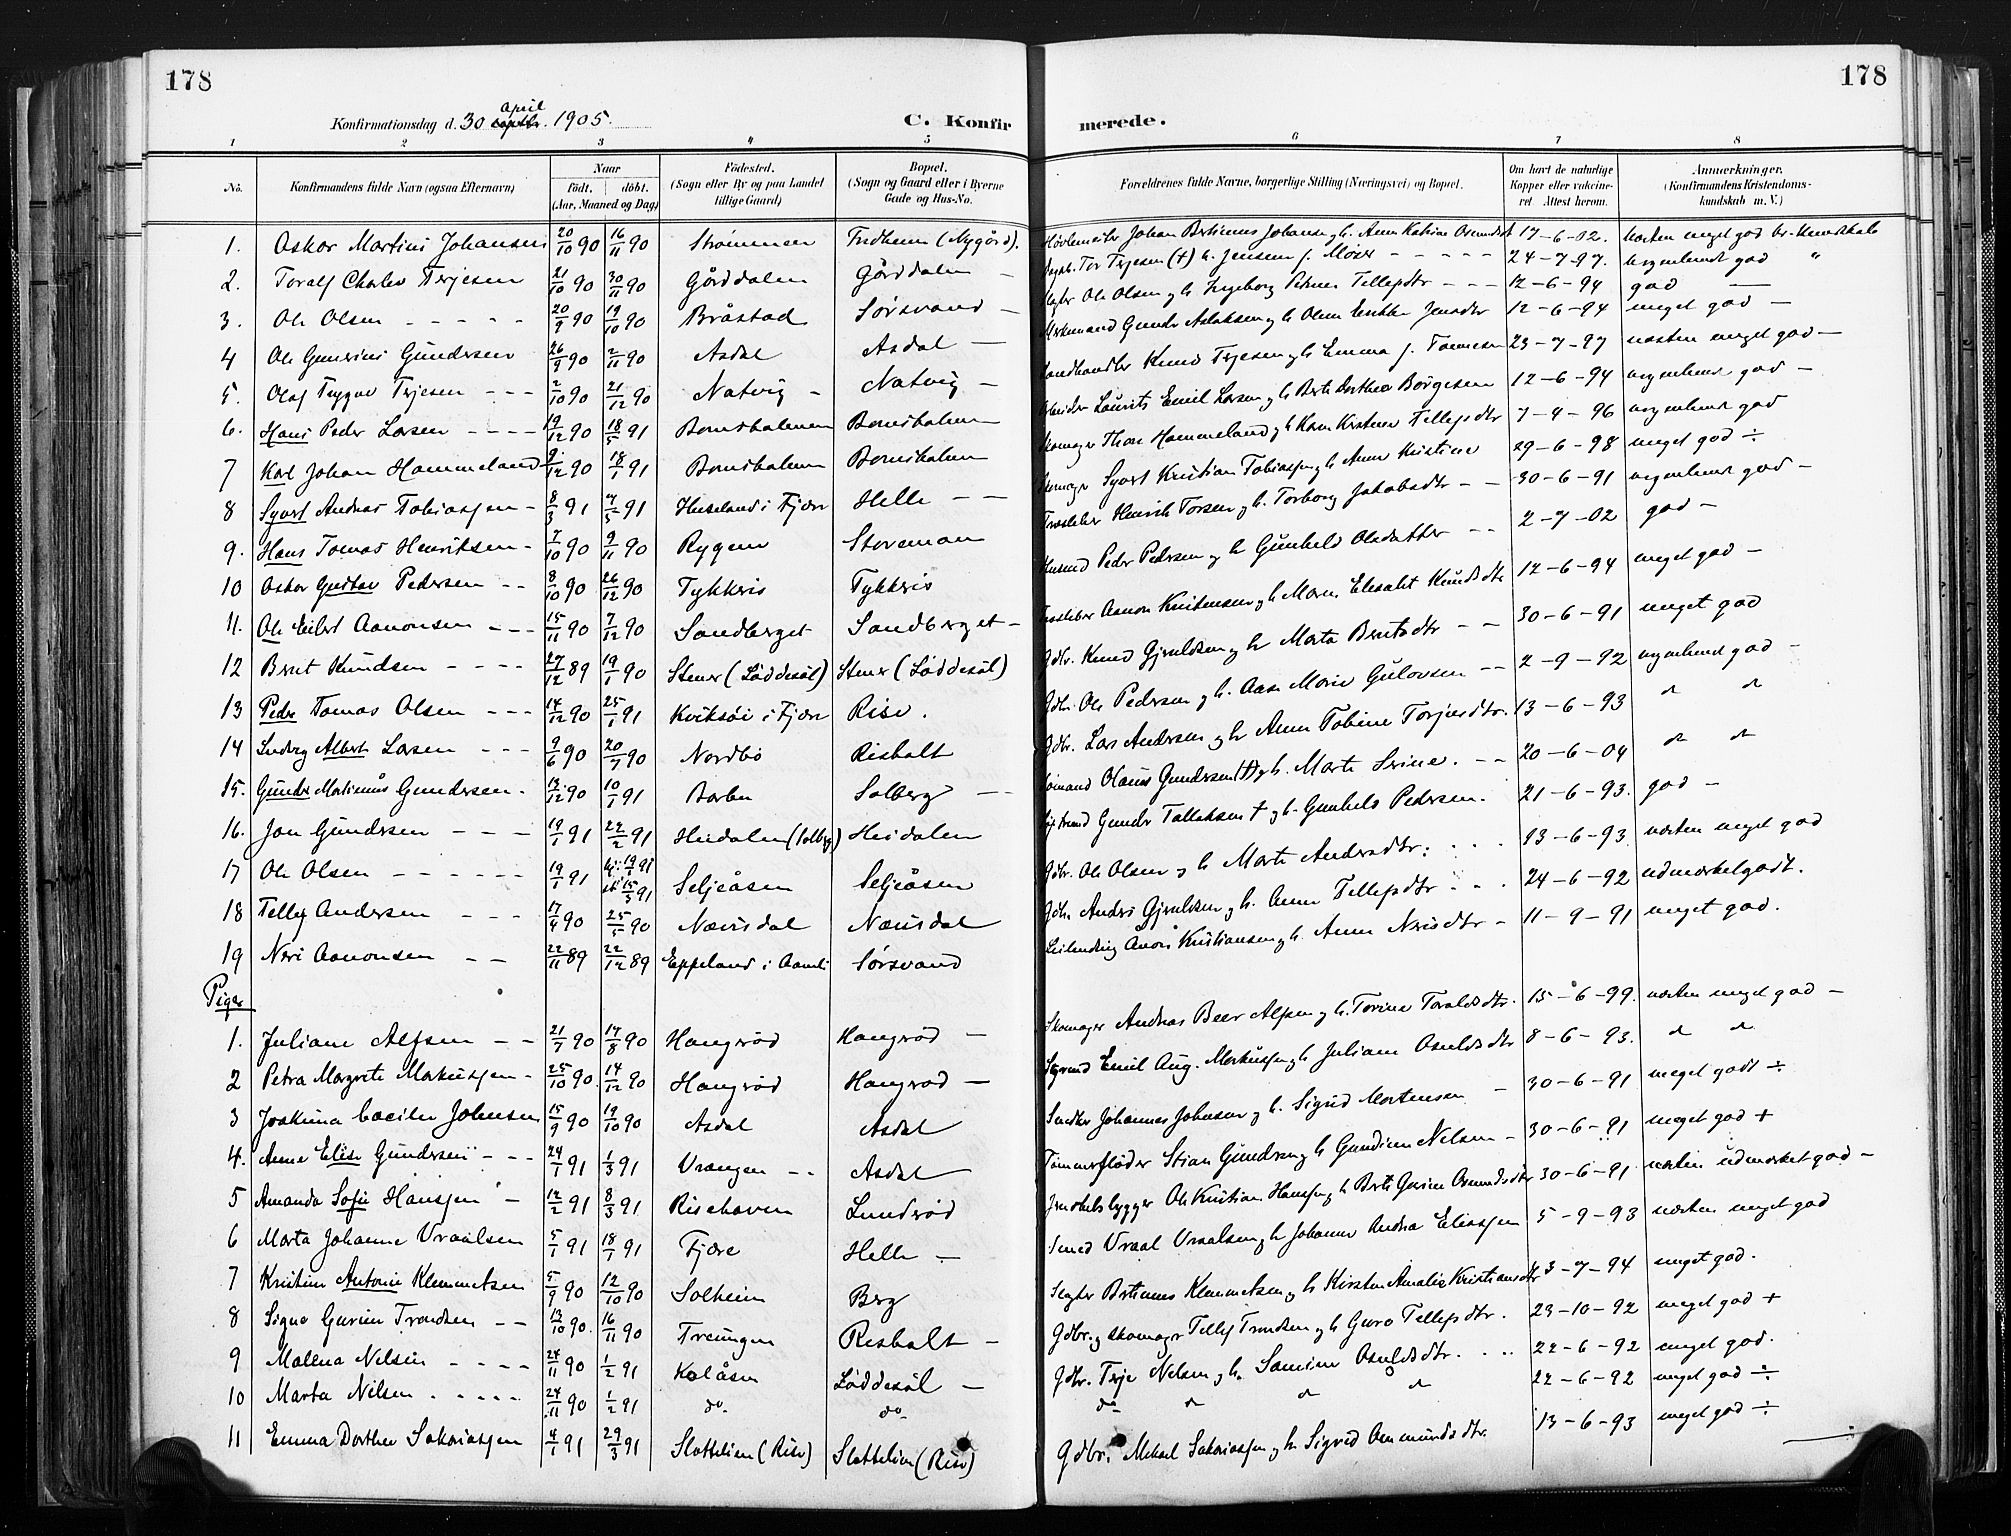 178
178
Konfirmationsdag d. 30 april septbr. 1905.
C. Konfirmerede.
1 2 3 4 5 6 7 8
No. Konfirmandens fulde Navn (ogsaa Efternavn) Naar født. døbt. (Aar, Maaned og Dag) Födested. (Sogn eller By og paa Landet tillige Gaard) Bopæl. (Sogn og Gaard eller i Byerne Gade og Hus-No. Forældrenes fulde Navne, borgerlige Stilling (Næringsvei) og Bopæl. Om havt de naturlige Kopper eller vaccineret. Attest herom. Anmærkninger. (Konfirmandens Kristendomskundskab m. V.)
1. Oskar Martini Johansen 20/10 90 16/11 90 Strømmen Fredheim (Nygård). Johan Bertinius Johansen og h. Anna Katrine 17-6-02. næsten meget god kr. kundskab
2. Toralf Charles Terjesen 21/10 90 30/11 90 Gårddalen Gårddalen — Tor Terjesen (+) h. Jensine f. Moier 24-7-97. nogenlunde god "
3. Ole Olsen 20/9 90 19/10 90 Bråstad Sørsvand — Ole Olsen og h. Ingeborg Petrine Tellefsdtr 12-6-94 god —
4 Ole Gunerius Gundersen 26/9 90 2/11 90 Asdal Asdal — Gunder Aslaksen og h. Olene Jensdtr 12-6-94 meget god —
5. Olaf Trygve Terjesen 2/10 90 21/12 90 Natvig — Natvig — Landhandler Knud Terjesen og h. Emma f. Tønnesen 23-7-97 næsten meget god —
6. Hans Peder Larsen 19/12 90 18/5 91 Bomsholmen Bomsholmen Arbeider Laurits Emil Larsen og h. Berte Dorthea Börgesen 12-6-94 nogenlunde god —
7 Karl Johan Hammeland 9/12 90 18/1 91 Bomsholmen Bomsholmen Skomager Thore Hammeland og h. Karen Kirstine Tellefsdtr 7-4-96 nogenlunde god
8 Syvert Andreas Tobiassen 8/3 91 91 Huseland i Fjære Helle — Syvert Kristian Tobiassen og h. Anne Kristine 29-6-98 meget god ÷
9. Hans Tomas Henriksen 7/10 90 9/11 90 Rygene Storemon Henrik Torsen og h. Torborg Jakobsdtr 30-6-91 nogenlunde god —
10 Oskar Gustav Pedersen 8/10 90 26/12 90 Tykkris Tykkris Peder Pedersen og h. Gunhild Olsdatter 2-7-02 god —
11. Ole Eilert Aanonsen 15/11 90 7/12 90 Sandberget Sandberget — Aanon Kristensen og h. Maren Elisabet Knudsdtr 12-6-94 meget god —
12 Bernt Knudsen 27/12 89 19/1 90 Stener (Løddesøl) Stener (Løddesøl) Gdbr. Knud Gjeruldsen og h. Marta Berntsdtr 30-6-91 meget god
13 Peder Tomas Olsen 14/12 90 25/1 91 Kviksöi i Fjære Rise. Gdbr. Ole Pedersen og h. Aase Marie Gulovsen 2-9-92 nogenlunde god —
14 Ludvig Albert Larsen 9/6 90 20/7 90 Nordbö Risholt Gdbr. Lars Andersen og h. Anne Tobine Torjusdtr. 13-6-93 " "
15. Gunder Martinius Gundersen 13/12 90 10/1 91 Barbu Solberg — Olaus Gundersen (+) og h. Marte Serine. 20-6-04 " "
16. Jon Gundersen 19/1 91 22/2 91 Heidalen (Solberg) Heidalen Gunder Tallaksen + og h. Gunhild Pedersen. 21-6-93. god —
17 Ole Olsen 19/1 91 hj. 19/1 91 st. 15/3 91 Seljeåsen Seljeåsen Gdbr. Ole Olsen og h. Marte Andersdtr. 13-6-93 næsten meget god
18 Tellef Andersen 17/4 90 25/5 90 Nævisdal Nævisdal Gdbr. Anders Gjeruldsen og h. Anne Tellefsdtr 24-6-92 udmærket godt.
19 Neri Aanonsen 22/11 89 22/12 89 Eppeland i Aamli Sørsvand Leilending Anon Kristiansen og h. Anne Nerisdtr 11-9-91 meget god.
Piger
1. Juliane Alfsen 21/7 90 17/8 90 Haugrød Haugrød — Skomager Andreas Beer Alfsen og h. Torine Toraldsdtr. 15-6-99. næsten meget god —
2 Petra Margrete Markussen 25/10 90 14/12 90 Haugrød Haugrød — Emil Aug. Markussen og h. Juliane Osuldsdtr 8-6-93. " "
3 Joakima Cæcilie Johnsen 15/9 90 19/10 90 Asdal Asdal Snedker Johannes Johnsen og h. Sigrid Mortensen — 30-6-91 meget godt ÷
4. Anne Elise Gundersen 24/1 91 1/3 91 Vrængen Asdal Tømmerfløder Stian Gundersen og h. Gundine Nilsen — 30-6-91 meget god +
5 Amanda Sofie Hanssen 12/2 91 8/3 91 Risehaven Lundrød Ole Kristian Hanssen og h. Berte Gurine Osmundsdtr 30-6-91 næsten udmærket god —
6 Marta Johanne Vraalsen 5/1 91 18/1 91 Fjære Helle — Smed Vraal Vraalsen og h. Johanne Andrea Eliassen 5-9-93 næsten meget god
7 Kristine Antonie Klemmetsen 5/9 90 12/10 90 Solheim Berg Slagter Bertinius Klemmetsen og h. Kirsten Amalie Kristiansdtr 3-7-94 meget god.
8 Signe Gurine Trondsen 13/10 90. 16/11 90 Treungen Risholt — Gdbr. og skomager Tellef Trondsen og h. Guro Tellefsdtr. 23-10-92 meget god +
9 Mallena Nilsen 24/11 90 1/2 91 Kalåsen Løddesøl — Gdbr. Terje Nelsen og h. Samine Osuldsdtr. 22-6-92 meget god.
10 Marta Nilsen 24/11 90 1/2 91 do. do. do. " " 22-6-92 meget god ÷
11 Emma Dorthea Sakariassen 4/1 91 29/3 91 Slottelien (Rise) Slottelien (Rise) Gdbr. Mikael Sakariassen og h. Sigrid Aamundsdtr. 13-6-93 meget god ÷